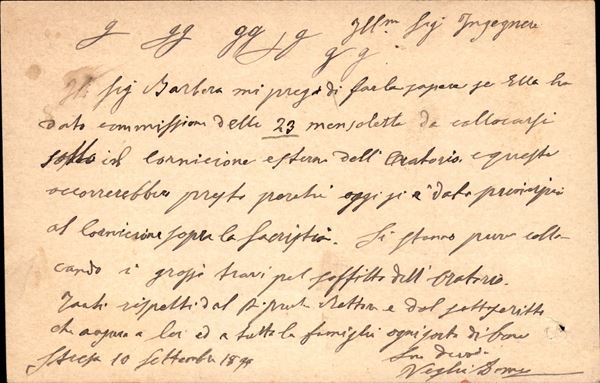 g gg gg g Ill.mo Sig Ingegnere
g g
Il Sig Barbera mi prega di farla sapere se Ella ha
dato commissione delle 23 mensolette da collocarsi
sotto il cornicione esterno dell' Oratorio, e queste
occorrerebbero presto perchè oggi si è dato principio
al cornicione sopra la Sacristia. Si stanno pure collo
cando i grossi travi pel soffitto dell' Oratorio.
Tanti rispetti dal Rettore e dal sottoscritto
che augura a lei ed a tutta la famiglia ogni sorta di bene
Stresa 10 Settembre
Suo